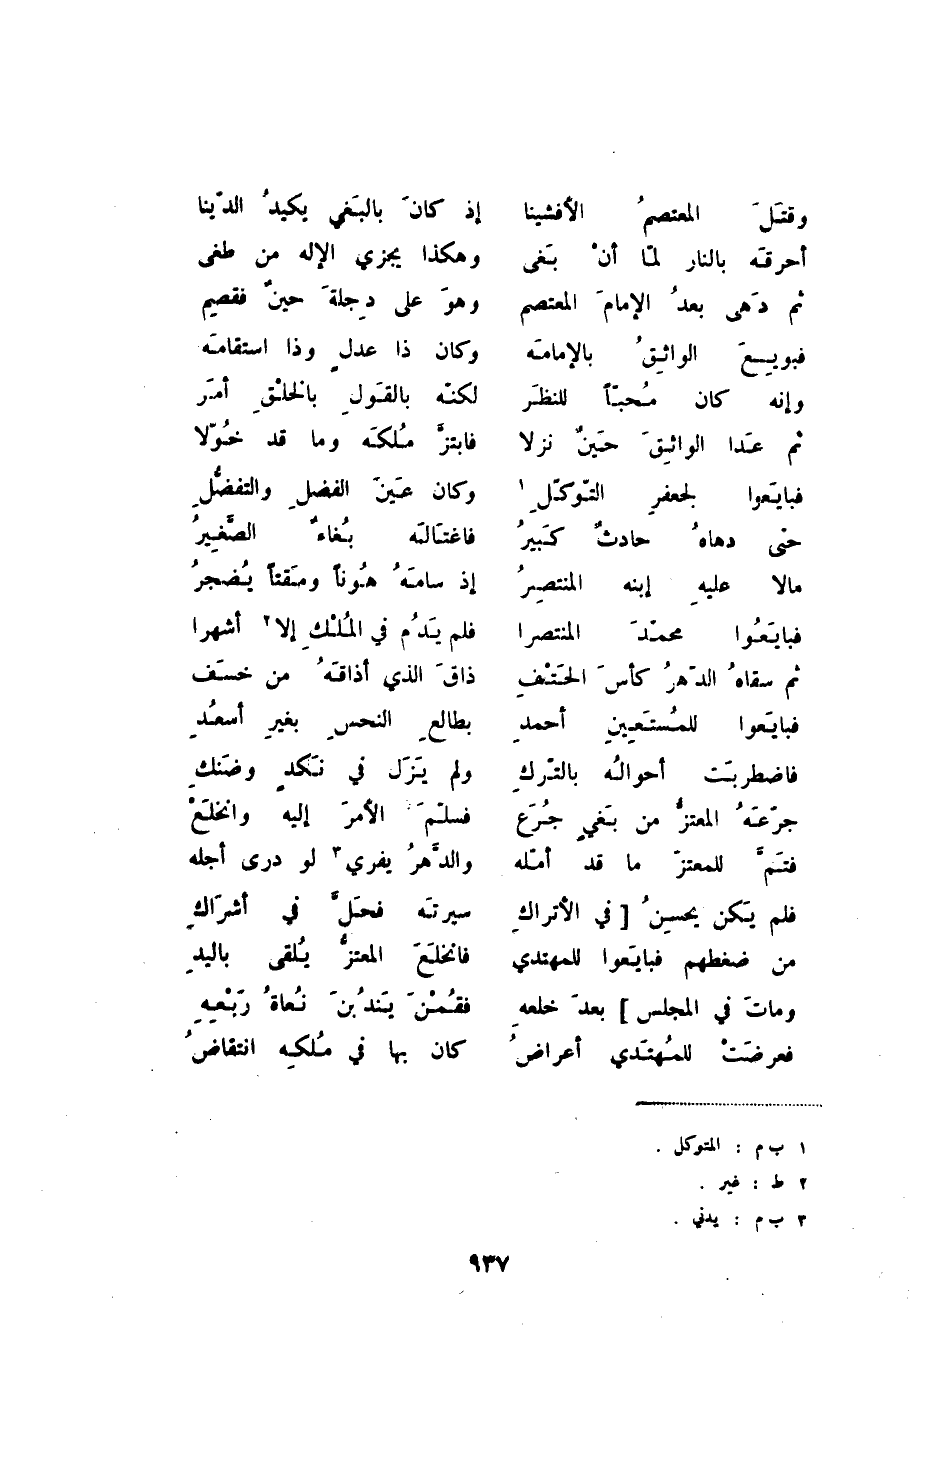 وقتَلَ المعتصمُ الأفشينا إذ كانَ بالبَغي يكيدُ الدّينا
أحرقَه بالنار لمّا أنْ بَغى وهكذا يجزي الإله من طغى
ثم دَهى بعدُ الإمامَ المعتصم وهوَ على دِجلةَ حينٌ فقصِم
فبويِعَ الواثِقُ بالإمامَه وكان ذا عدلٍ وذا استقامَه
وإنه كان مُحبّاً للنظَر لكنّه بالقَولِ بالخلْقِ أمَر
ثم عَدا الواثِقَ حَينٌ نزلا فابتزَّ مُلكَه وما قد خُوّلا
فبايَعوا لجعفرِ التّوكّلِ ١ وكان عَينَ الفضلِ والتفضُّلِ
حتى دهاهُ حادثٌ كَبيرُ فاغتَالَه بُغاءٌ الصَّغيرُ
مالا عليهِ إبنه المنتصِرُ إذ سامَهُ هُوناً ومَقتاً يُضجرُ
فبايَعُوا محمّدَ المنتصرا فلم يَدُم في المُلْكِ إلا ٢ أشهرا
ثم سقاهُ الدّهرُ كأسَ الحَتْفِ ذاقَ الذي أذاقَهُ من خسَف
فبايَعوا للمُستَعِينِ أحمدِ بطالعِ النحسِ بغيرِ أسعُدِ
فاضطربَت أحوالُه بالتّركِ ولم يَزَل في نَكدٍ وضَنكِ
جرّعَهُ المعتزُّ من بَغيٍ جُرَع فسلّمَ الأمرَ إليه وانخلَعْ
فتَمَّ للمعتزّ ما قد أمّله والدَّهرُ يفري ٣ لو درى أجله
فلم يَكن يحسِنُ [ في الأتراكِ سيرتَه فحَلَّ في أشرَاكِ
من ضغطهم فبايَعوا للمهتدي فانخلَعَ المعتزُّ يُلقى باليدِ
وماتَ في المجلس ] بعدَ خلعهِ فقُمْنَ يَندُبنَ نُعاةُ رَبْعِهِ
فعرضَتْ للمُهتَدي أعراضُ كان بها في مُلكِه انتقاضُ
١ ب م : المتوكل .
٢ ط : غير .
٣ ب م : يدني .
٩٣٧